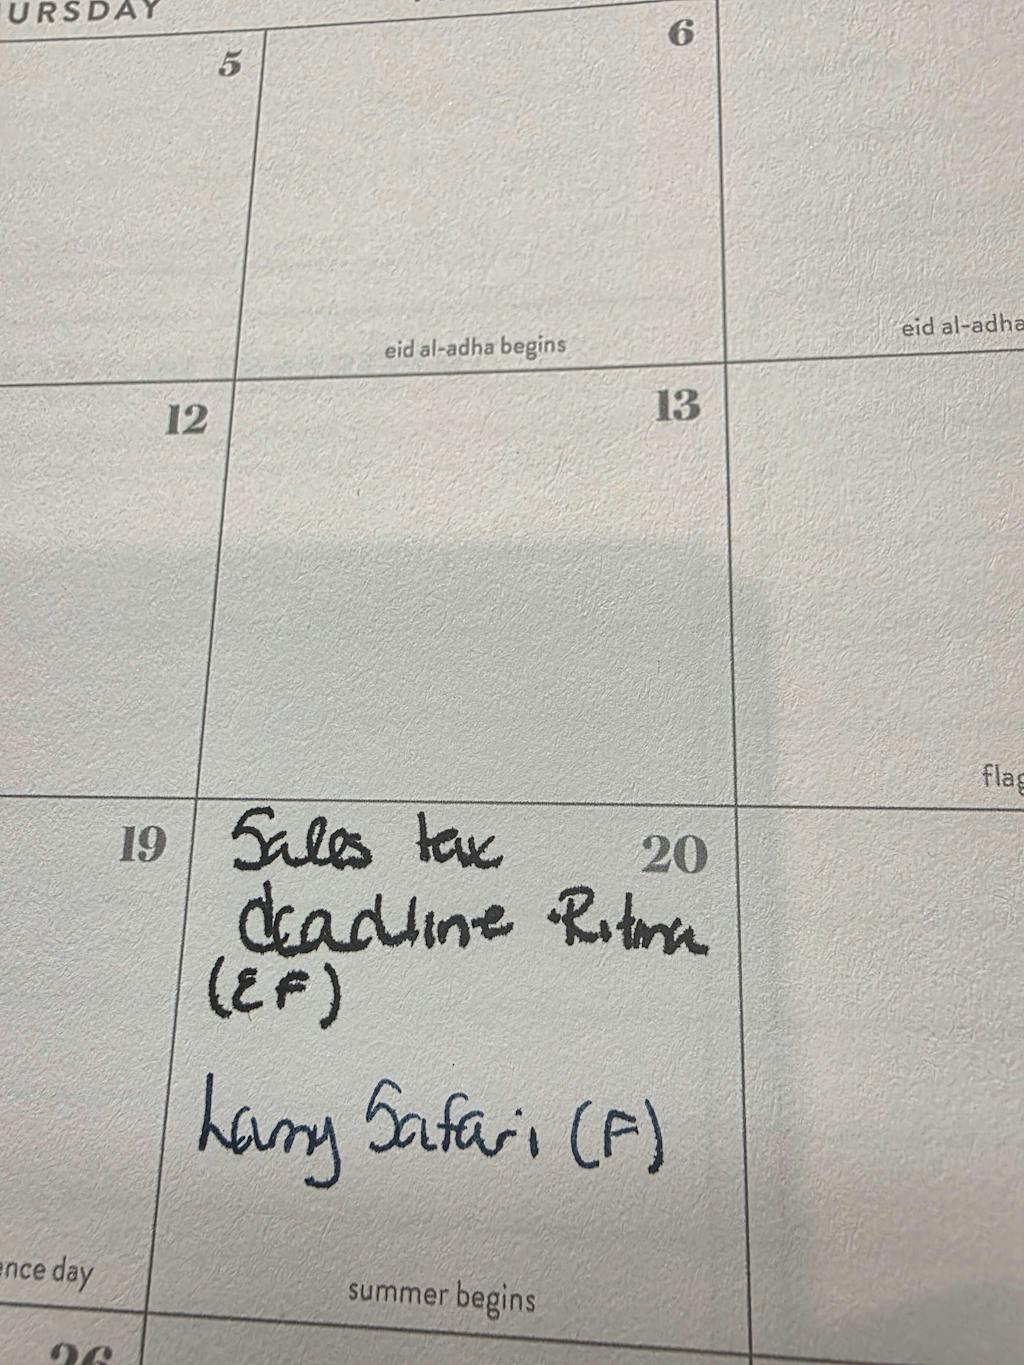 URSDAY
5
6
eid al-adha begins
eid al-adha
12
13
flag
19
Sales tax 20
deadline · Ritma
(EF)
Larry Safari (F)
ence day
summer begins
26